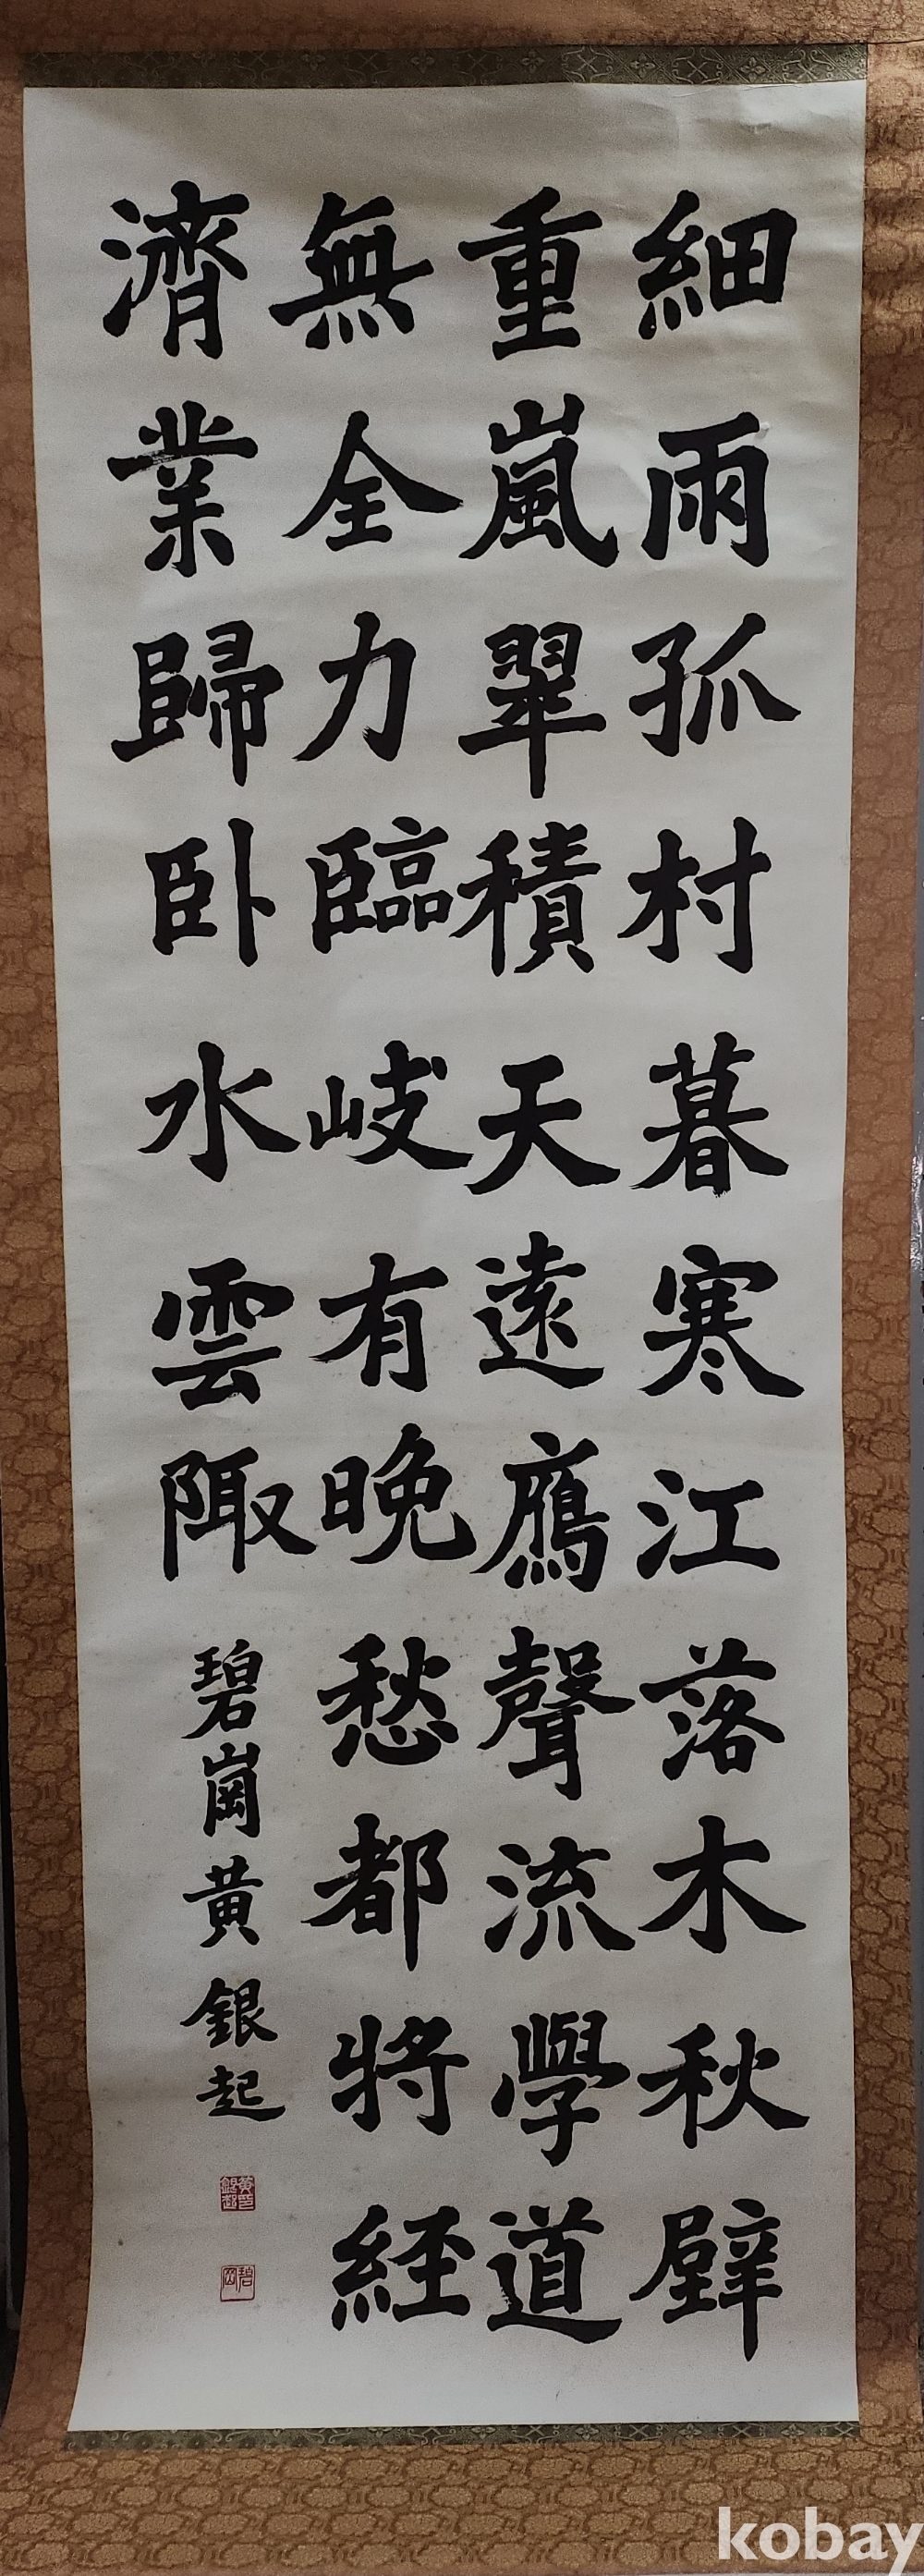 細雨孤村暮寒江落木秋壁
重嵐翠積天遠鴈聲流學道
無全力臨岐有晚愁都將経
濟業歸卧水雲陬
碧崗黃銀起
kobay